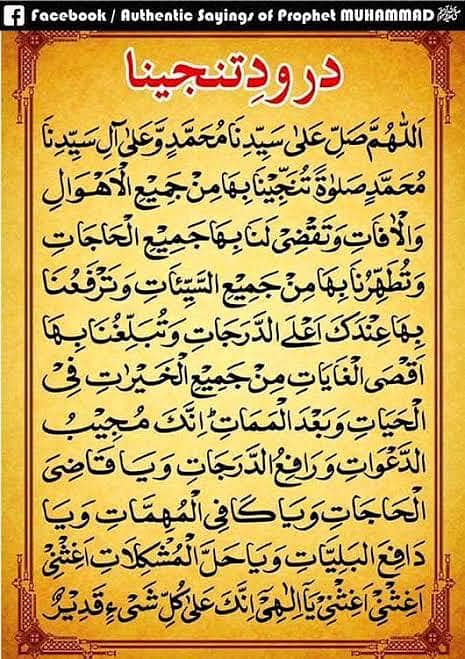 Facebook / Authentic Sayings of Prophet MUHAMMAD ﷺ
درودِ تنجینا
اَللّٰهُمَّ صَلِّ عَلٰى سَيِّدِنَا مُحَمَّدٍ وَّعَلٰى آلِ سَيِّدِنَا
مُحَمَّدٍ صَلٰوةً تُنَجِّيْنَا بِهَا مِنْ جَمِيْعِ الْاَهْوَالِ
وَالْاٰفَاتِ وَتَقْضِىْ لَنَا بِهَا جَمِيْعَ الْحَاجَاتِ
وَتُطَهِّرُنَا بِهَا مِنْ جَمِيْعِ السَّيِّئَاتِ وَتَرْفَعُنَا
بِهَا عِنْدَكَ اَعْلَى الدَّرَجَاتِ وَتُبَلِّغُنَا بِهَا
اَقْصَى الْغَايَاتِ مِنْ جَمِيْعِ الْخَيْرَاتِ فِى
الْحَيَاتِ وَبَعْدَ الْمَمَاتِ اِنَّكَ مُجِيْبُ
الدَّعْوَاتِ وَرَافِعُ الدَّرَجَاتِ وَيَا قَاضِىَ
الْحَاجَاتِ وَيَا كَافِىَ الْمُهِمَّاتِ وَيَا
دَافِعَ الْبَلِيَّاتِ وَيَا حَلَّ الْمُشْكِلَاتِ اَغِثْنِىْ
اَغِثْنِىْ اَغِثْنِىْ يَآ اِلٰهِىْ اِنَّكَ عَلٰى كُلِّ شَىْءٍ قَدِيْرٌ